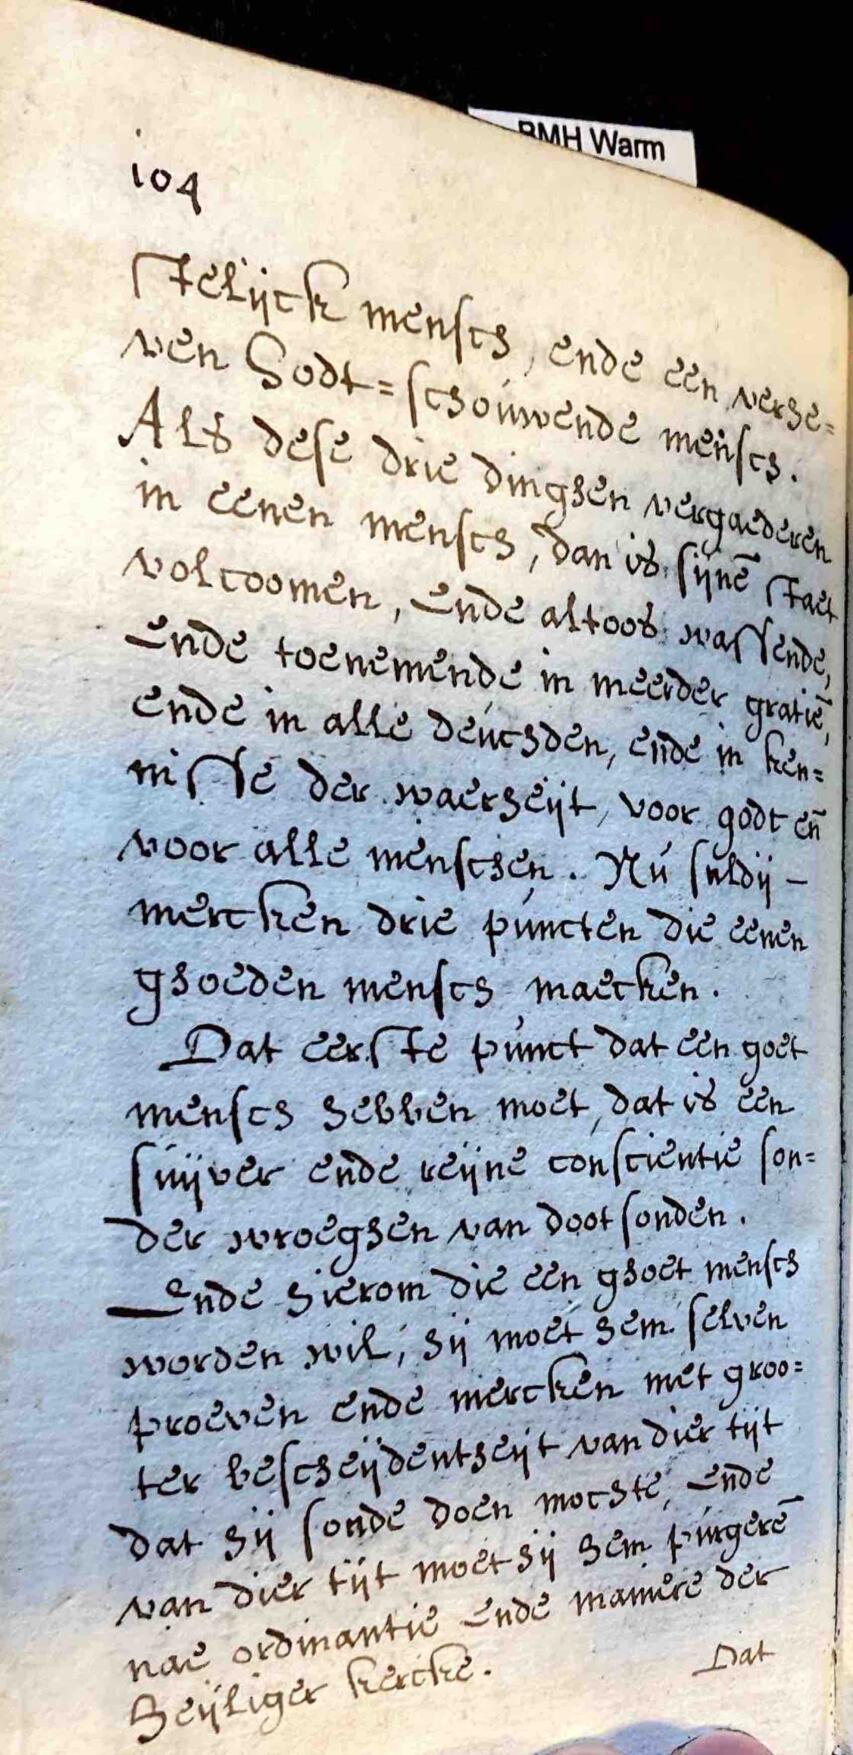 BMH Warm
104
stelijck mensch, ende een verhe=
ven Godt=schouwende mensch.
Als dese drie dinghen vergaederen
in eenen mensch, dan is sijnē staet
volcoomen, Ende altoos wassende,
Ende toenemende in meerder gratiē,
ende in alle deúchden, ende in ken=
nisse der waerheijt, voor godt en̄
voor alle menschen. Nú suldij –
mercken drie púncten die eenen
ghoeden mensch maecken.
Dat eerste púnct dat een goet
mensch hebben moet, dat is een
suijver ende reijne conscientie son=
der wroeghen van doot sonden.
Ende hierom die een ghoet mensch
worden wil, hij moet hem selven
proeven ende mercken met groo=
ter bescheijdentheijt van dier tijt
dat hij sonde doen mochte, Ende
van dier tijt moet hij hem púrgerē
nae ordinantie Ende maniere der
heijliger kercke.
Dat